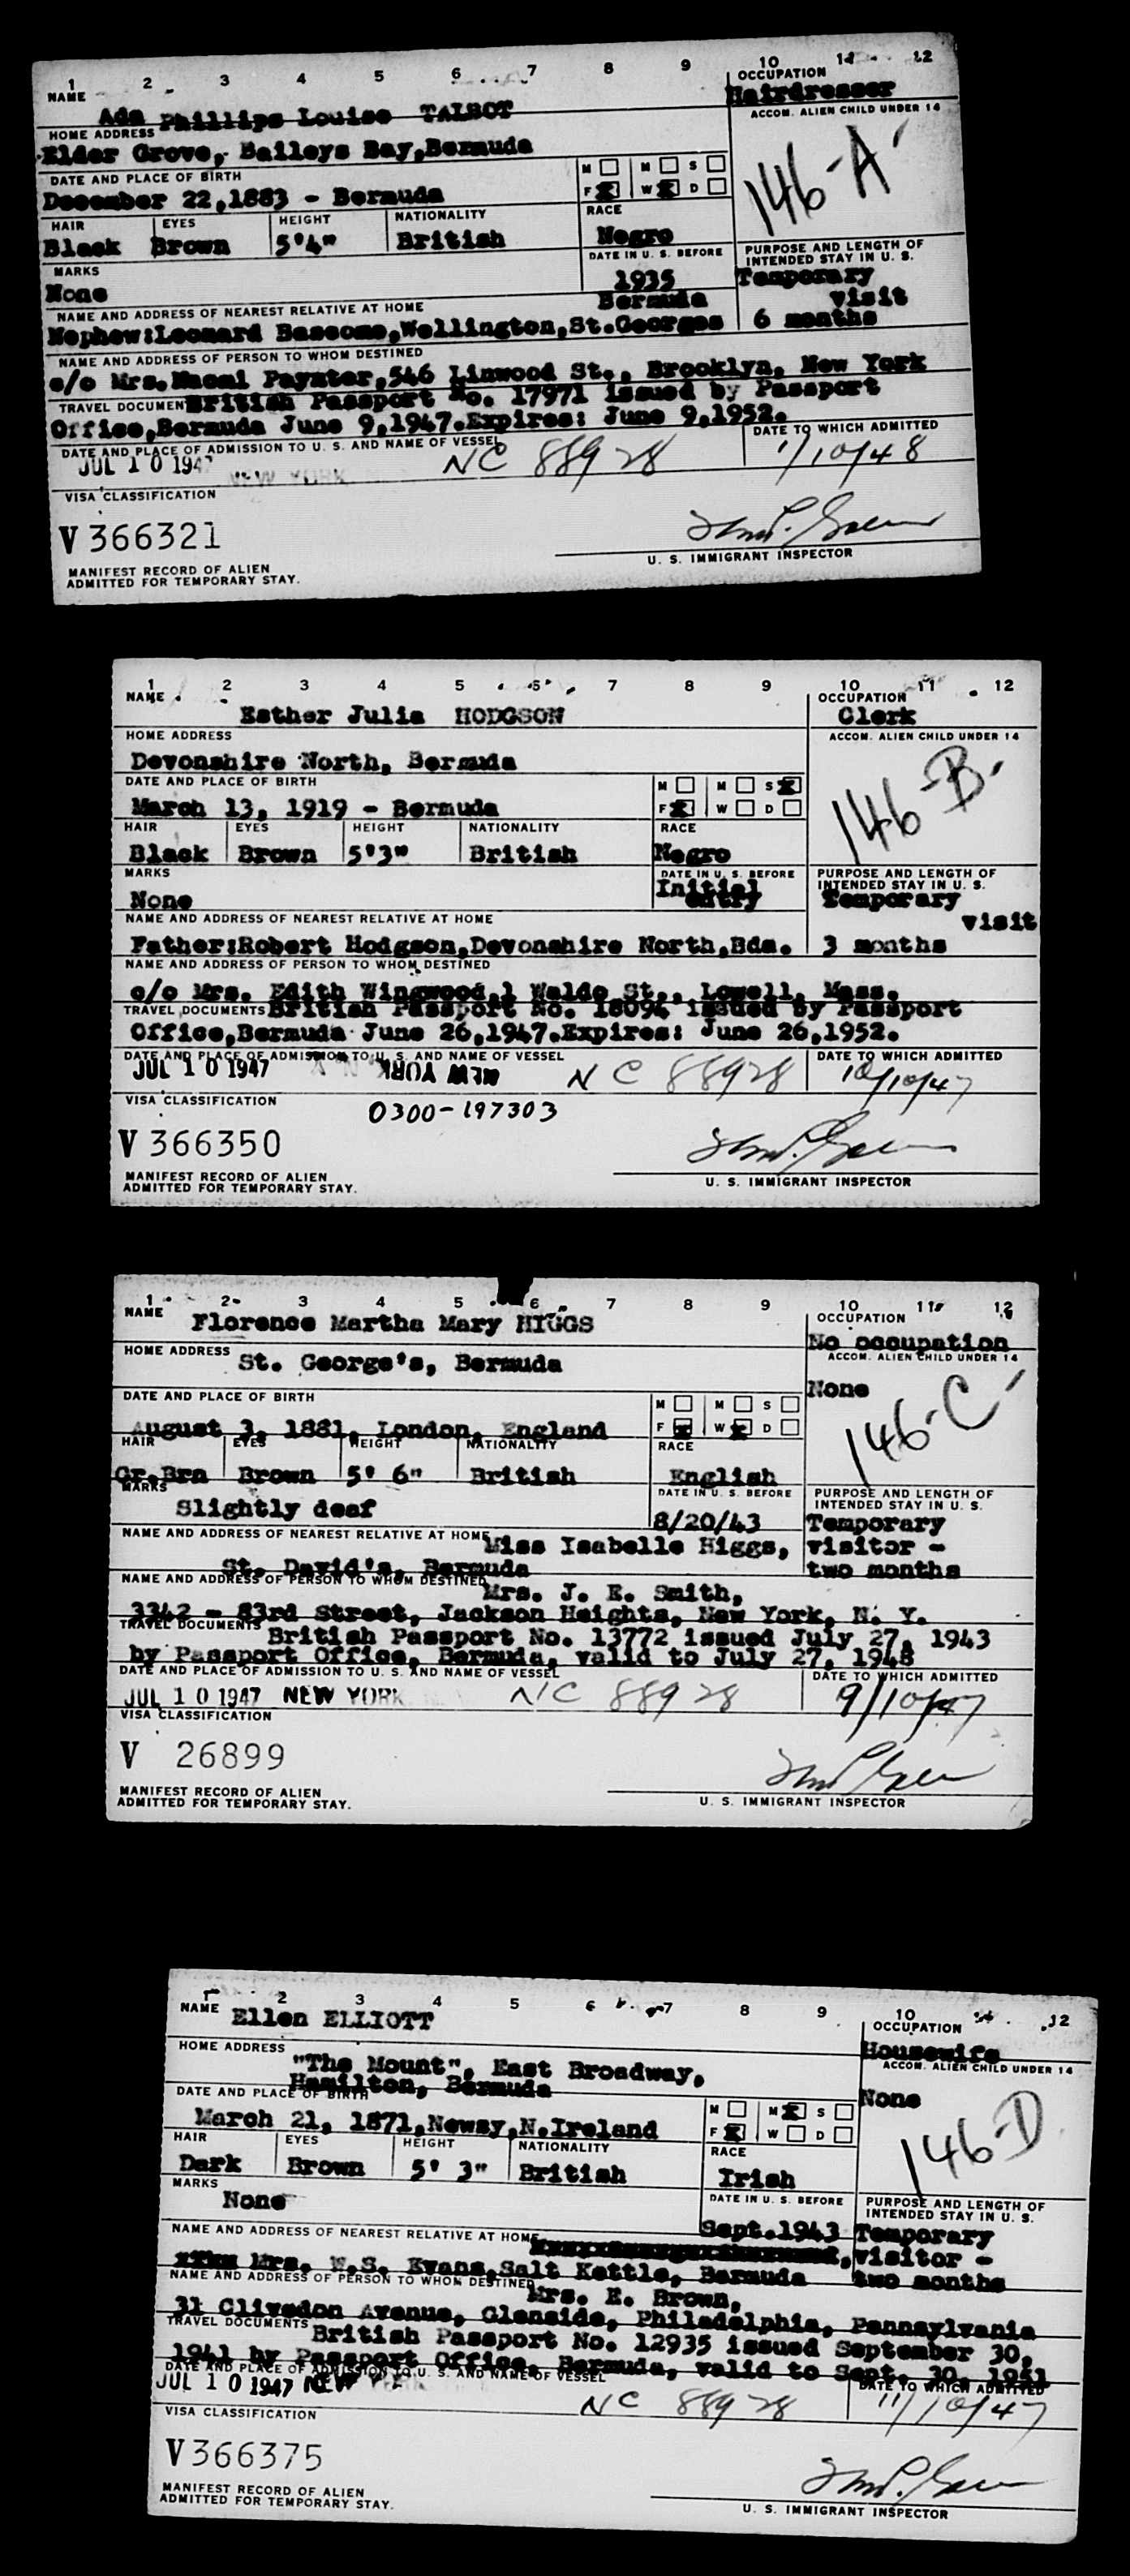 1 2 3 4 5 6 7 8 9 10 11 12
NAME OCCUPATION
Ada Phillips Louise TALBOT Hairdresser
HOME ADDRESS ACCOM. ALIEN CHILD UNDER 14
Elder Grove, Baileys Bay, Bermuda
146-A
DATE AND PLACE OF BIRTH M M S
December 22, 1883 - Bermuda F X W X D
HAIR EYES HEIGHT NATIONALITY RACE
Black Brown 5'4" British Negro
MARKS DATE IN U. S. BEFORE PURPOSE AND LENGTH OF INTENDED STAY IN U. S.
None 1935 Temporary visit
NAME AND ADDRESS OF NEAREST RELATIVE AT HOME Bermuda
Nephew:Leonard Bascome,Wellington,St.Georges 6 months
NAME AND ADDRESS OF PERSON TO WHOM DESTINED
c/o Mrs.Naomi Paynter,546 Linwood St., Brooklyn, New York
TRAVEL DOCUMENTS British Passport No. 17971 issued by Passport
Office,Bermuda June 9,1947.Expires: June 9,1952.
DATE AND PLACE OF ADMISSION TO U. S. AND NAME OF VESSEL DATE TO WHICH ADMITTED
JUL 10 1947 NEW YORK NC 88928 1/10/48
VISA CLASSIFICATION
V 366321
U. S. IMMIGRANT INSPECTOR
MANIFEST RECORD OF ALIEN
ADMITTED FOR TEMPORARY STAY.
1 2 3 4 5 6 7 8 9 10 11 12
NAME OCCUPATION
Esther Julia HODGSON Clerk
HOME ADDRESS ACCOM. ALIEN CHILD UNDER 14
Devonshire North, Bermuda
146-B
DATE AND PLACE OF BIRTH M M S X
March 13, 1919 - Bermuda F X W D
HAIR EYES HEIGHT NATIONALITY RACE
Black Brown 5'3" British Negro
MARKS DATE IN U. S. BEFORE PURPOSE AND LENGTH OF INTENDED STAY IN U. S.
None Initial entry Temporary visit
NAME AND ADDRESS OF NEAREST RELATIVE AT HOME
Father:Robert Hodgson,Devonshire North,Bda. 3 months
NAME AND ADDRESS OF PERSON TO WHOM DESTINED
c/o Mrs. Edith Wingwood,1 Waldo St., Lowell, Mass.
TRAVEL DOCUMENTS British Passport No. 18094 issued by Passport
Office,Bermuda June 26,1947.Expires: June 26,1952.
DATE AND PLACE OF ADMISSION TO U. S. AND NAME OF VESSEL DATE TO WHICH ADMITTED
JUL 10 1947 NEW YORK NC 88928 10/10/47
VISA CLASSIFICATION 0300-197303
V 366350
MANIFEST RECORD OF ALIEN
ADMITTED FOR TEMPORARY STAY. U. S. IMMIGRANT INSPECTOR
1 2 3 4 5 6 7 8 9 10 11 12
NAME Florence Martha Mary HIGGS OCCUPATION
No occupation
HOME ADDRESS St. George's, Bermuda ACCOM. ALIEN CHILD UNDER 14
None
146-C
DATE AND PLACE OF BIRTH M M S
August 3, 1881, London, England F X W X D
HAIR EYES HEIGHT NATIONALITY RACE
Gr.Brn Brown 5' 6" British English
MARKS DATE IN U. S. BEFORE PURPOSE AND LENGTH OF INTENDED STAY IN U. S.
Slightly deaf 8/20/43 Temporary
NAME AND ADDRESS OF NEAREST RELATIVE AT HOME Miss Isabelle Higgs, visitor -
St. David's, Bermuda two months
NAME AND ADDRESS OF PERSON TO WHOM DESTINED Mrs. J. E. Smith,
3342 - 83rd Street, Jackson Heights, New York, N. Y.
TRAVEL DOCUMENTS British Passport No. 13772 issued July 27, 1943
by Passport Office, Bermuda, valid to July 27, 1948
DATE AND PLACE OF ADMISSION TO U. S. AND NAME OF VESSEL DATE TO WHICH ADMITTED
JUL 10 1947 NEW YORK NC 88928 9/10/47
VISA CLASSIFICATION
V 26899
MANIFEST RECORD OF ALIEN
ADMITTED FOR TEMPORARY STAY. U. S. IMMIGRANT INSPECTOR
1 2 3 4 5 6 7 8 9 10 12
NAME Ellen ELLIOTT OCCUPATION
Housewife
HOME ADDRESS ACCOM. ALIEN CHILD UNDER 14
"The Mount", East Broadway, None
Hamilton, Bermuda
146-D
DATE AND PLACE OF BIRTH M M X S
March 21, 1871,Neway,N.Ireland F X W D
HAIR EYES HEIGHT NATIONALITY RACE
Dark Brown 5' 3" British Irish
MARKS DATE IN U. S. BEFORE PURPOSE AND LENGTH OF INTENDED STAY IN U. S.
None Sept.1943 Temporary
NAME AND ADDRESS OF NEAREST RELATIVE AT HOME visitor -
Mrs. W.S. Evans,Salt Kettle, Bermuda two months
NAME AND ADDRESS OF PERSON TO WHOM DESTINED Mrs. E. Brown,
31 Clivedon Avenue, Glenside, Philadelphia, Pennsylvania
TRAVEL DOCUMENTS British Passport No. 12935 issued September 30,
1941 by Passport Office, Bermuda, valid to Sept. 30, 1951
DATE AND PLACE OF ADMISSION TO U. S. AND NAME OF VESSEL DATE TO WHICH ADMITTED
JUL 10 1947 NEW YORK NC 88928 11/10/47
VISA CLASSIFICATION
V 366375
MANIFEST RECORD OF ALIEN
ADMITTED FOR TEMPORARY STAY. U. S. IMMIGRANT INSPECTOR